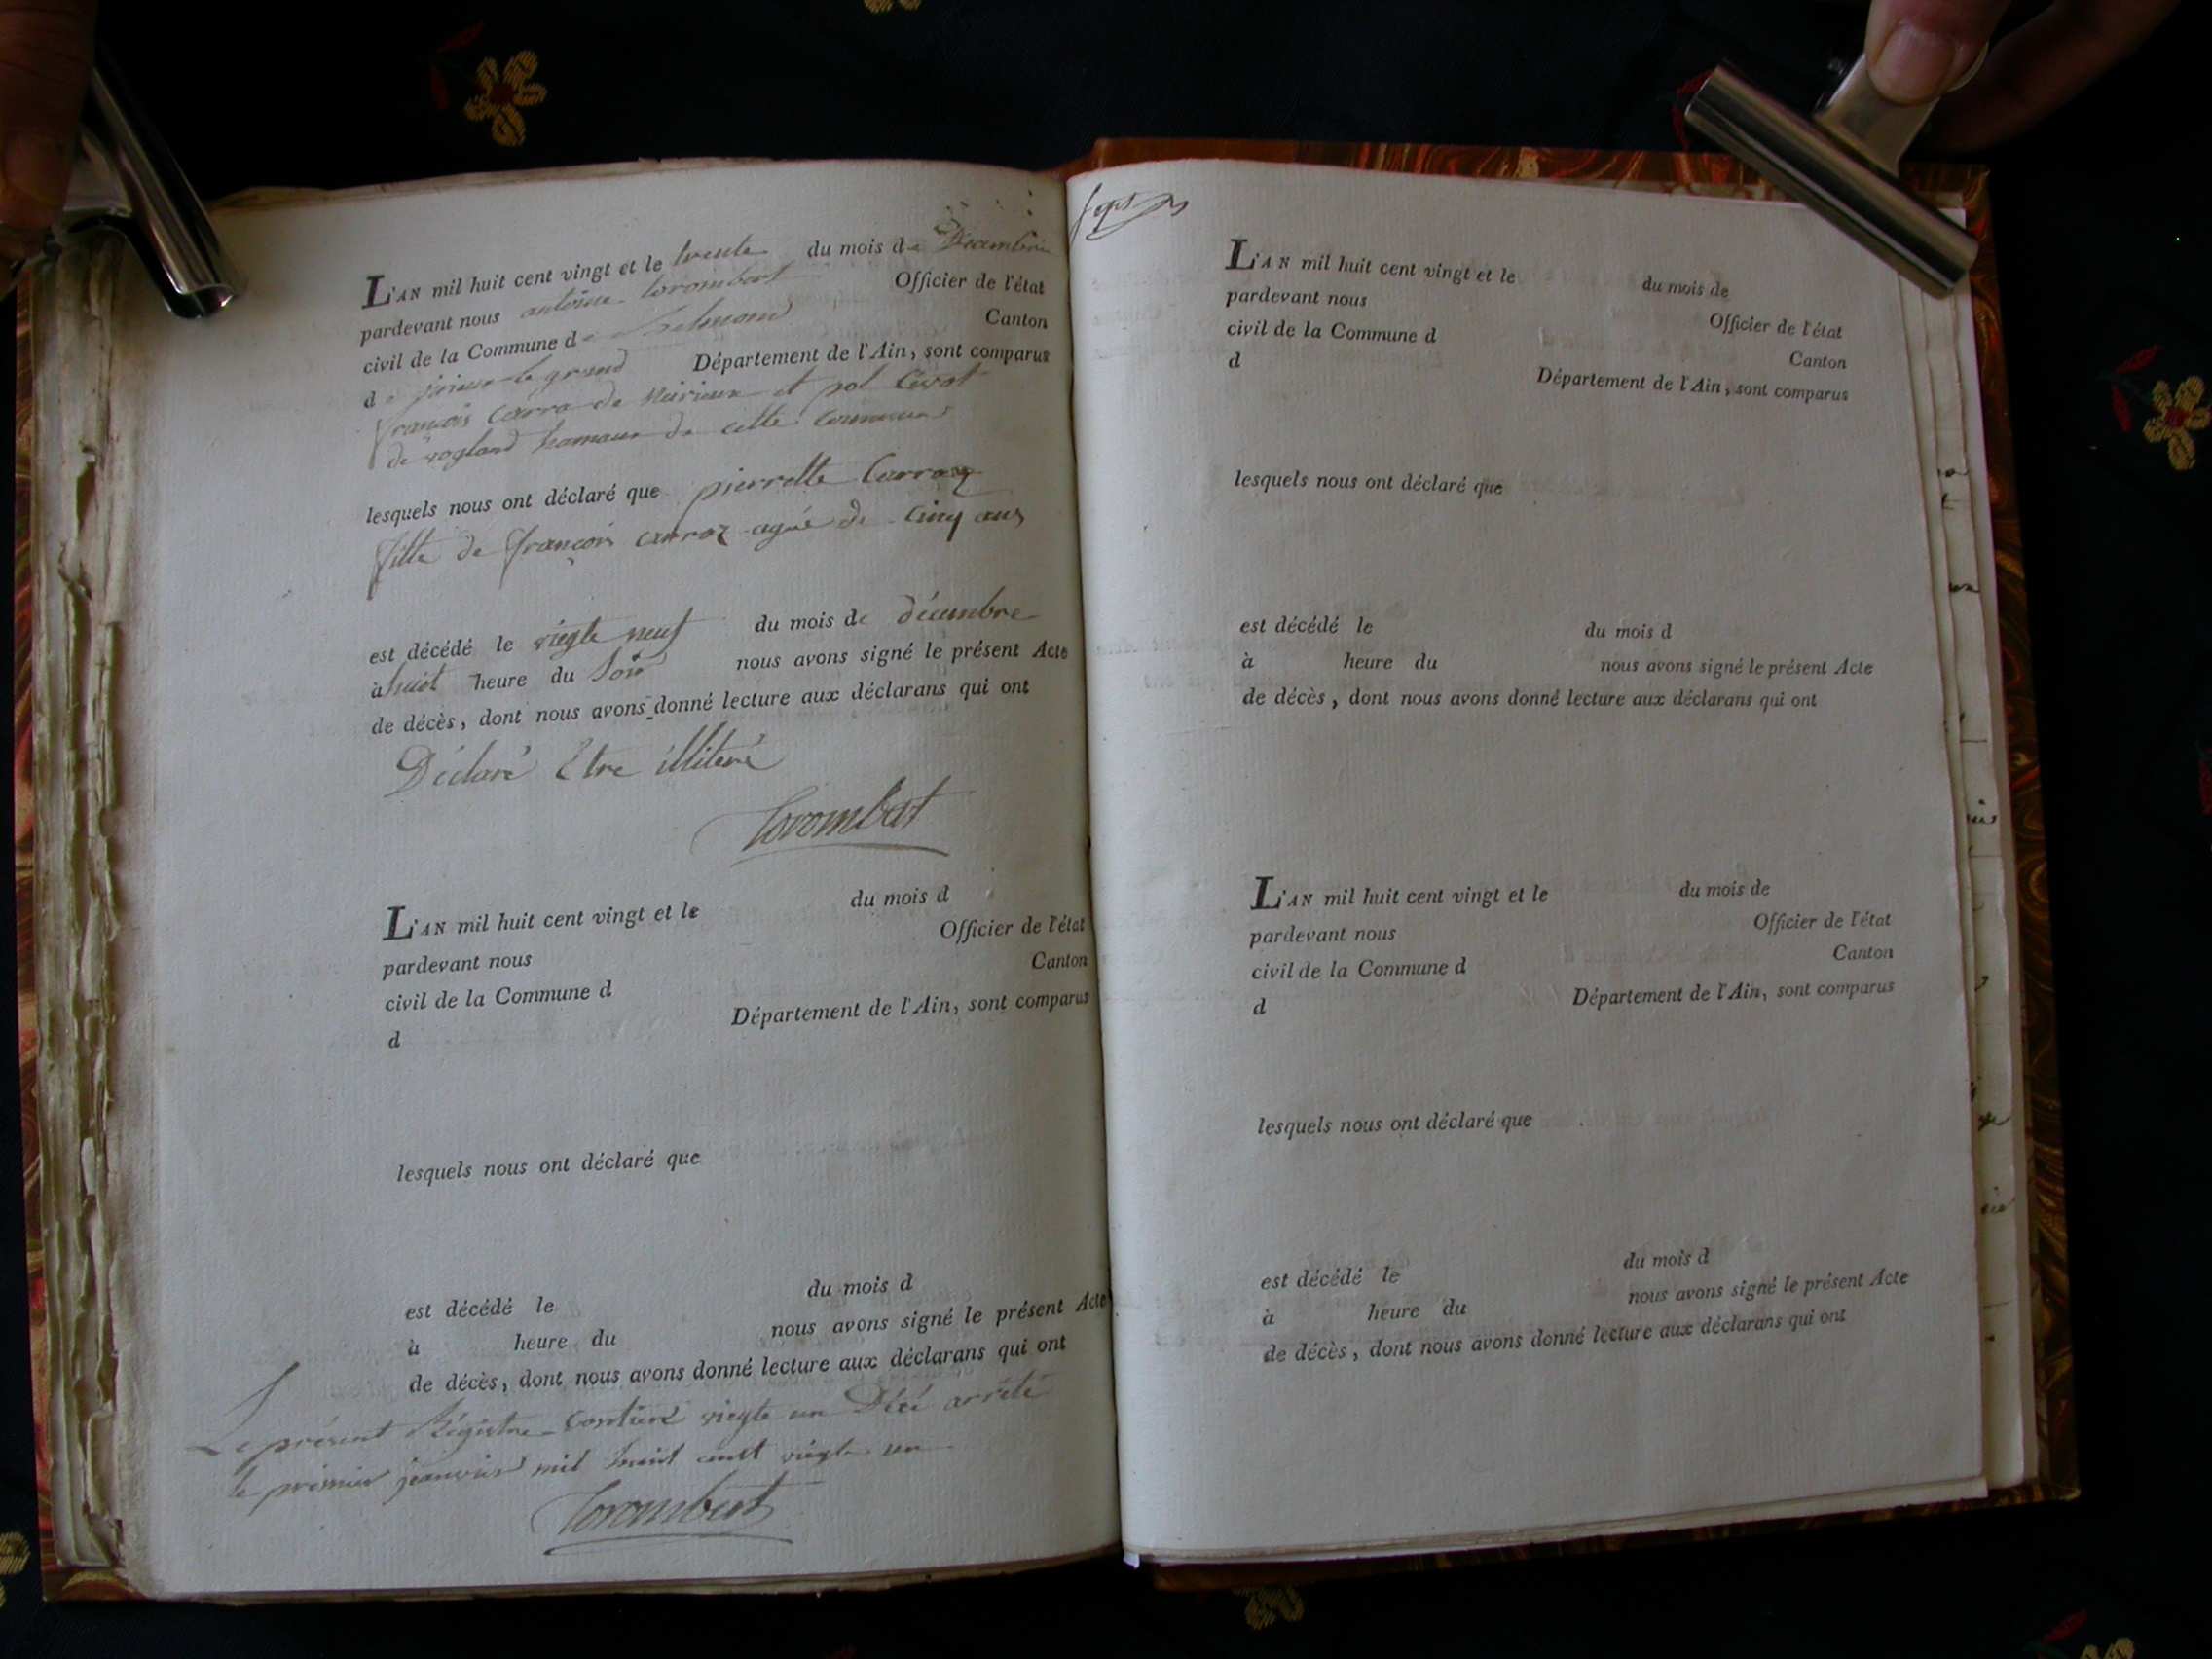 L'AN mil huit cent vingt et le trente du mois de Décembre
pardevant nous antoine Corombert Officier de l'état
civil de la Commune de Belmond Canton
de virieu le grand Département de l'Ain, sont comparus
françois Carra de et pol
de vogland hamaux de cette Commune
lesquels nous ont déclaré que pierrette Carraz
fille de françois carraz agée de Cinq ans
est décédé le viegte neuf du mois de décembre
à huit heure du soir nous avons signé le présent Acte
de décès, dont nous avons donné lecture aux déclarans qui ont
Déclaré Etre illiteré
Corombert
L'AN mil huit cent vingt et le du mois d
pardevant nous Officier de l'état
civil de la Commune d Canton
d Département de l'Ain, sont comparus
lesquels nous ont déclaré que
est décédé le du mois d
à heure du nous avons signé le présent Acte
de décès, dont nous avons donné lecture aux déclarans qui ont
Le présent Régistre Contient viegte un Décé arrêté
le premier jeanvier mil huit cent viegte un
Corombert
sept
L'AN mil huit cent vingt et le du mois de
pardevant nous Officier de l'état
civil de la Commune d Canton
d Département de l'Ain, sont comparus
lesquels nous ont déclaré que
est décédé le du mois d
à heure du nous avons signé le présent Acte
de décès, dont nous avons donné lecture aux déclarans qui ont
L'AN mil huit cent vingt et le du mois de
pardevant nous Officier de l'état
civil de la Commune d Canton
d Département de l'Ain, sont comparus
lesquels nous ont déclaré que
est décédé le du mois d
à heure du nous avons signé le présent Acte
de décès, dont nous avons donné lecture aux déclarans qui ont